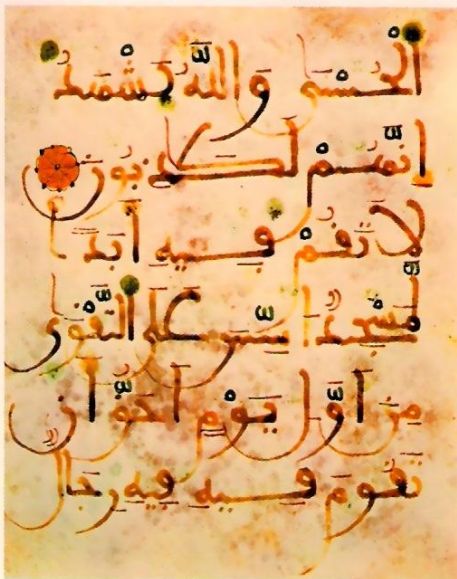 الْحُسْنَى وَاللَّهُ يَشْهَدُ
إِنَّهُمْ لَكَٰذِبُونَ
لَا تَقُمْ فِيهِ أَبَدًا
لَّمَسْجِدٌ اسِّسَ عَلَى التَّقْوَى
مِنَ اَوَّلِ يَوْمٍ اَحَقُّ أَن
تَقُومَ فِيهِ فِيهِ رِجَالٌ